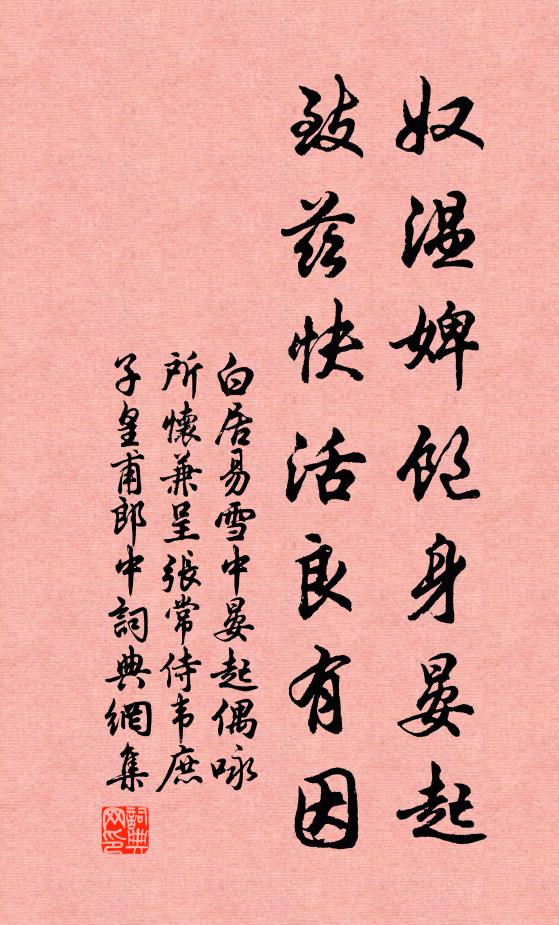 奴温婢飽身晏起
致茲快活良有因
白居易雪中晏起偶咏
所懷兼呈張常侍韦庶
子皇甫郎中詞典網集
詞典
网印